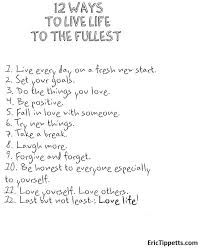 12 WAYS
TO LIVE LIFE
TO THE FULLEST
1. Live every day on a fresh new start.
2. Set your goals.
3. Do the things you love.
4. Be positive.
5. Fall in love with someone.
6. Try new things.
7. Take a break.
8. Laugh more.
9. Forgive and forget.
10. Be honest to everyone especially
to yourself.
11. Love yourself. Love others.
12. Last but not least: Love life!
EricTippetts.com